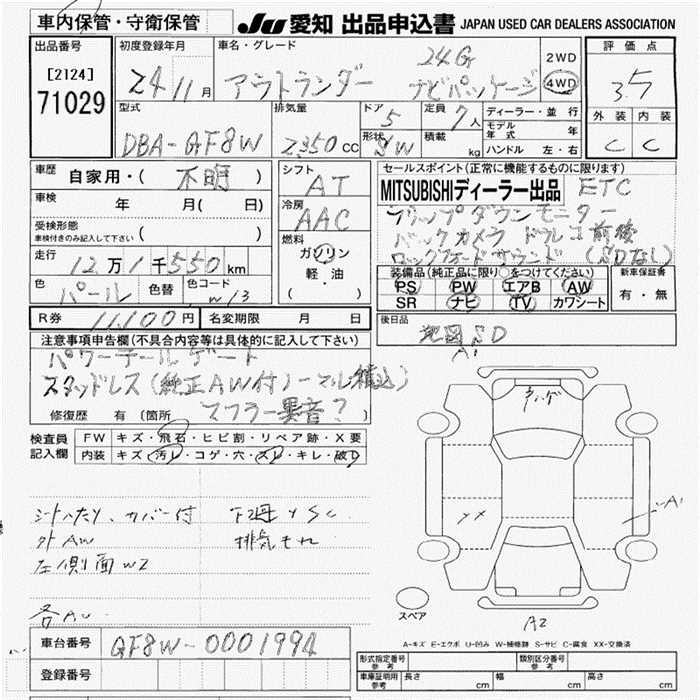 車内保管・守衛保管 JU 愛知 出品申込書 JAPAN USED CAR DEALERS ASSOCIATION
出品番号 初度登録年月 車名・グレード 24G 2WD 評価点
[2124] 24 11月 アウトランダー ナビパッケージ 4WD 3.5
71029 型式 排気量 ドア 5 定員 7人 ディーラー・並行 外装 内装
DBA-GF8W 2350cc 形状 SW 積載 kg モデル年式 年 C C
ハンドル 左・右
車歴 自家用・(不明) シフト AT セールスポイント(正常に機能するものに限ります)
車検 年 月( 日) 冷房 AAC MITSUBISHIディーラー出品 ETC
受検形態 ( ) フリップダウンモニター
車検付きのみ記入して下さい 燃料 バックカメラ ドラレコ前後
走行 12万1千550km ガソリン ロックフォードサウンド (SDなし)
色 パール 色替 色コード W13 軽・油 装備品(純正品に限り○をつけてください) 新車保証書
( ) PS PW エアB AW 有・無
SR ナビ TV カワシート
R券 11,100円 名変期限 月 日 後日品
注意事項申告欄(不具合内容等は具体的に記入して下さい) 地図SD
パワーテールゲート A1
スタッドレス(純正AW付ノーマル積込)
修復歴 有 (箇所 マフラー異音?
検査員 FW キズ・飛石・ヒビ割・リペア跡・X要
記入欄 内装 キズ・汚レ・コゲ・穴・スレ・キレ・破レ
シートヘたり、カバー付 下廻りSC
外AW 排気もれ XX A1
左側面W2
各AU スペア A2
A-キズ E-エクボ U-凹み W-補修跡 S-サビ C-腐食 XX-交換済
車台番号 GF8W-0001994
登録番号 形式指定番号 参考 類別区分番号 参考
車庫証明用 参考 長さ cm 幅 cm 高さ cm